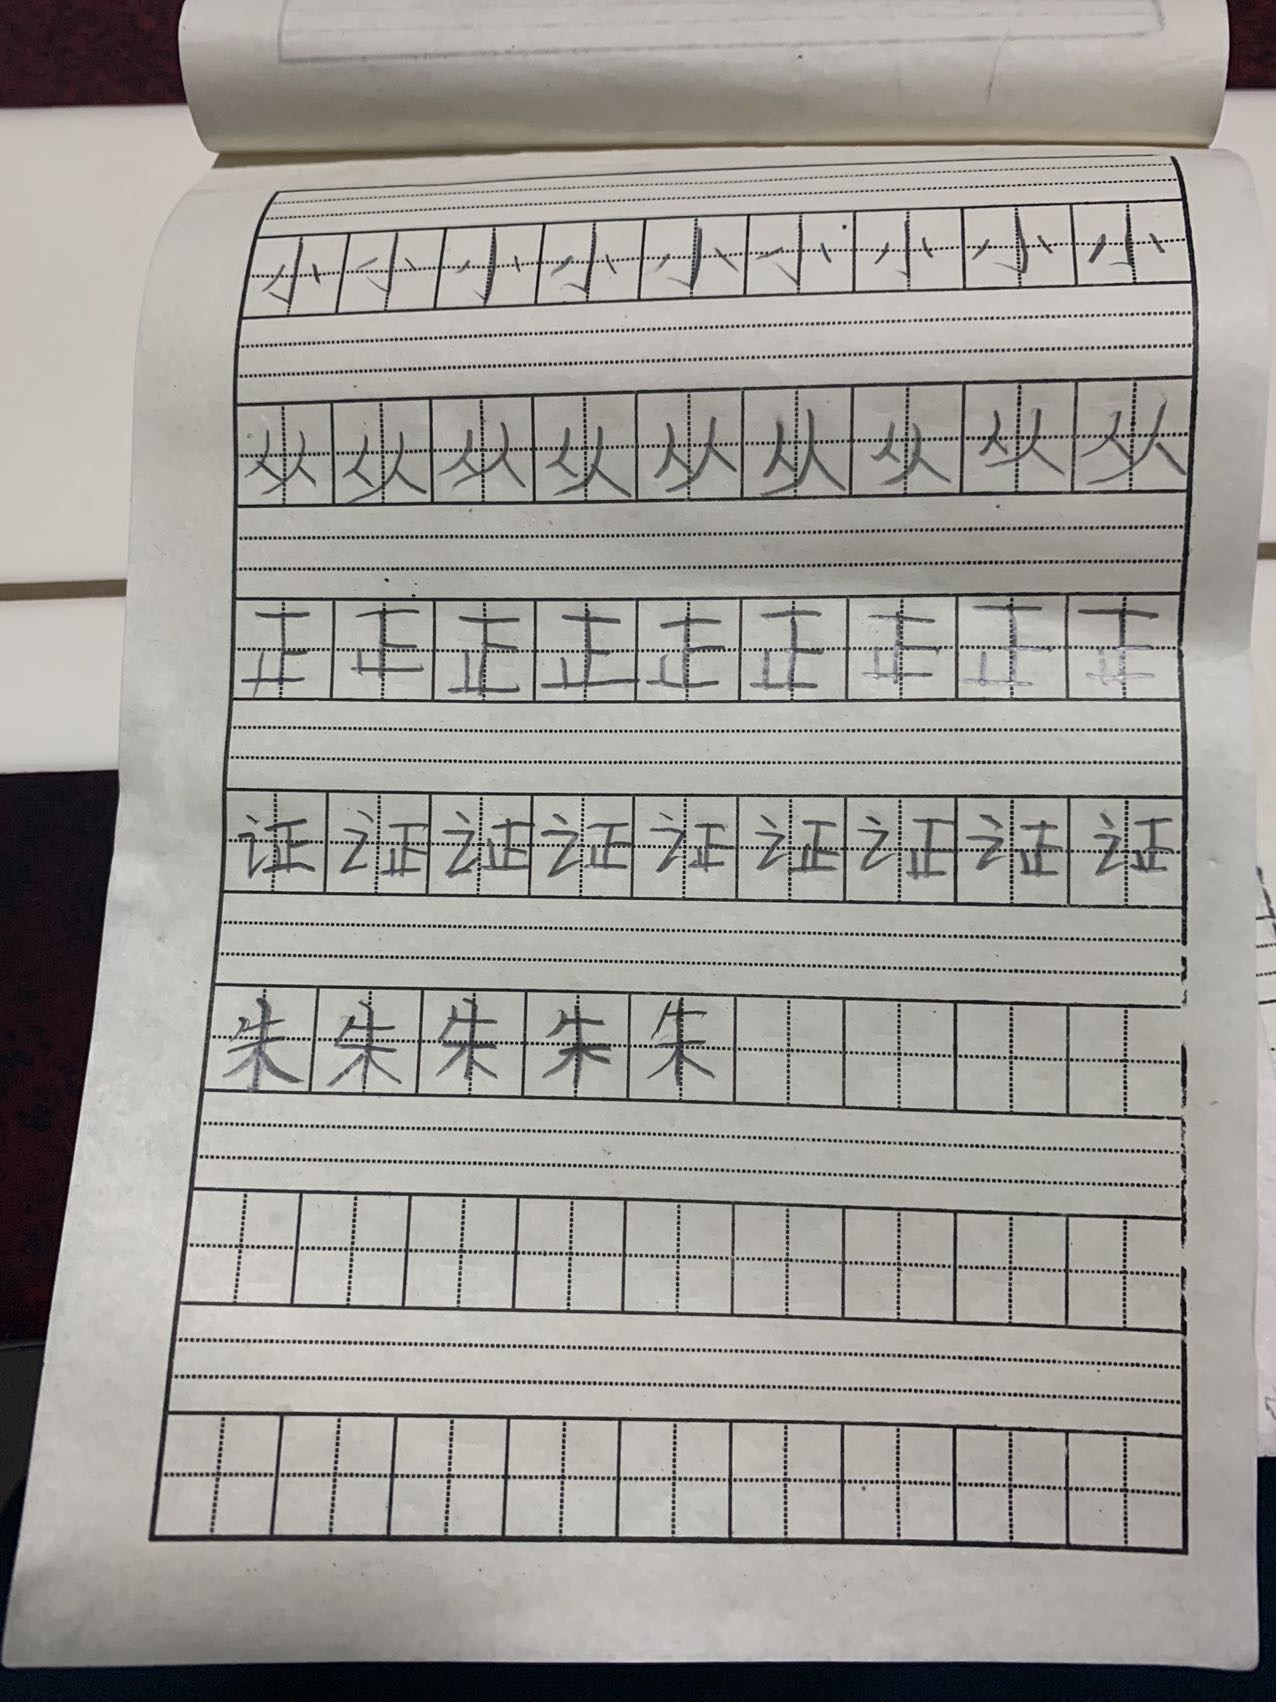 小小小小小小小小小
从从从从从从从从从
正正正正正正正正正
证证证证证证证证证
朱朱朱朱朱